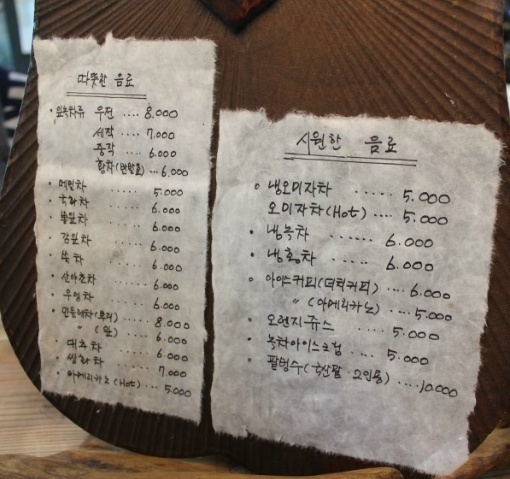 따뜻한 음료
• 잎녹차류 우전 .... 8.000
세작 .... 7.000
중작 .... 6.000
황차(반발효) ... 6.000
• 메밀차 5.000
• 국화차 6.000
• 뽕잎차 6.000
• 감잎차 6.000
• 쑥차 6.000
• 산야초차 6.000
• 우엉차 6.000
• 민들레차(뿌리) 8.000
" (잎) 6.000
• 대추차 6.000
• 쌍화차 7.000
• 아메리카노(Hot) .... 5.000
시원한 음료
• 냉오미자차 ..... 5.000
오미자차(Hot) .... 5.000
• 냉녹차 ...... 6.000
• 냉홍차 ..... 6.000
• 아이스커피(더치커피) ... 6.000
" (아메리카노) .... 5.000
• 오렌지쥬스 ..... 5.000
• 녹차아이스크림 ... 5.000
• 팥빙수(국산팥·2인용) .... 10.000